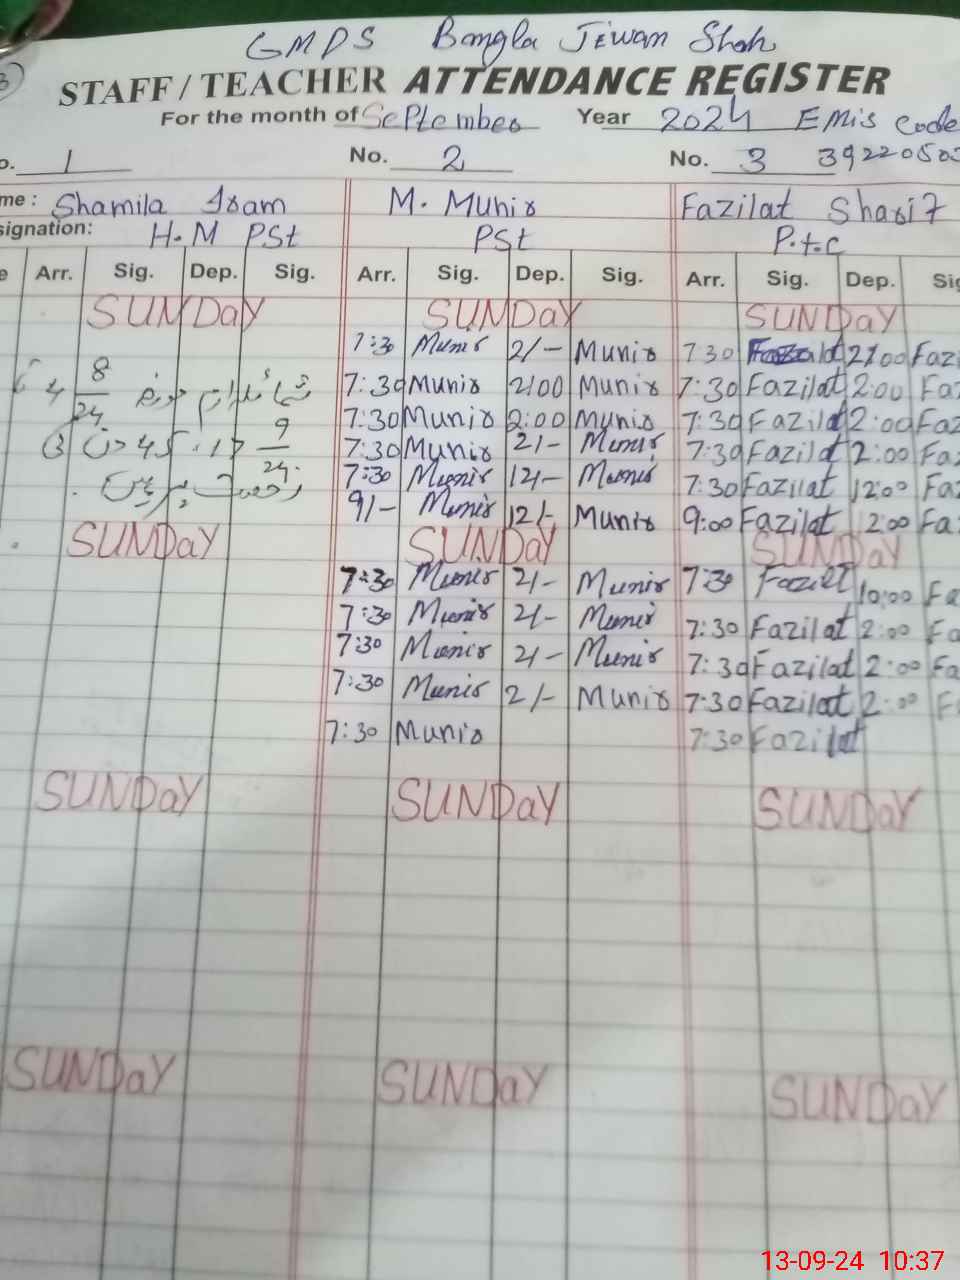 GMPS Bangla Jewan Shah
STAFF / TEACHER ATTENDANCE REGISTER
For the month of September Year 2024 EMis Code
No. 1 No. 2 No. 3 39220503
me : Shamila Iram M. Munir Fazilat Sharif
signation: H.M PSt PSt P.t.C
e Arr. Sig. Dep. Sig. Arr. Sig. Dep. Sig. Arr. Sig. Dep. Sig
SUNDay SUNDay SUNDay
7:30 Munir 2/- Munir 7 30 Fazilat 2:00 Fazi
8 7:30 Munir 2:00 Munir 7:30 Fazilat 2:00 Fa
24 7:30 Munir 2:00 Munir 7:30 Fazilat 2:00 Faz
9 7:30 Munir 2/- Munir 7:30 Fazilat 2:00 Fa
24 7:30 Munir 12/- Munir 7:30 Fazilat 12:00 Faz
رخصت پر ہیں 9/- Munir 12/- Munir 9:00 Fazilat 12:00 Fa
SUNDay SUNDay SUNDay
7:30 Munir 2/- Munir 7:30 Fazilt 10:00 Fa
7:30 Munir 2/- Munir 7:30 Fazilat 2:00 Fa
7:30 Munir 2/- Munir 7:30 Fazilat 2:00 Fa
7:30 Munir 2/- Munir 7:30 Fazilat 2:00 F
7:30 Munir 7:30 Fazilat
SUNDay SUNDay SUNDay
SUNDay SUNDay SUNDay
13-09-24 10:37